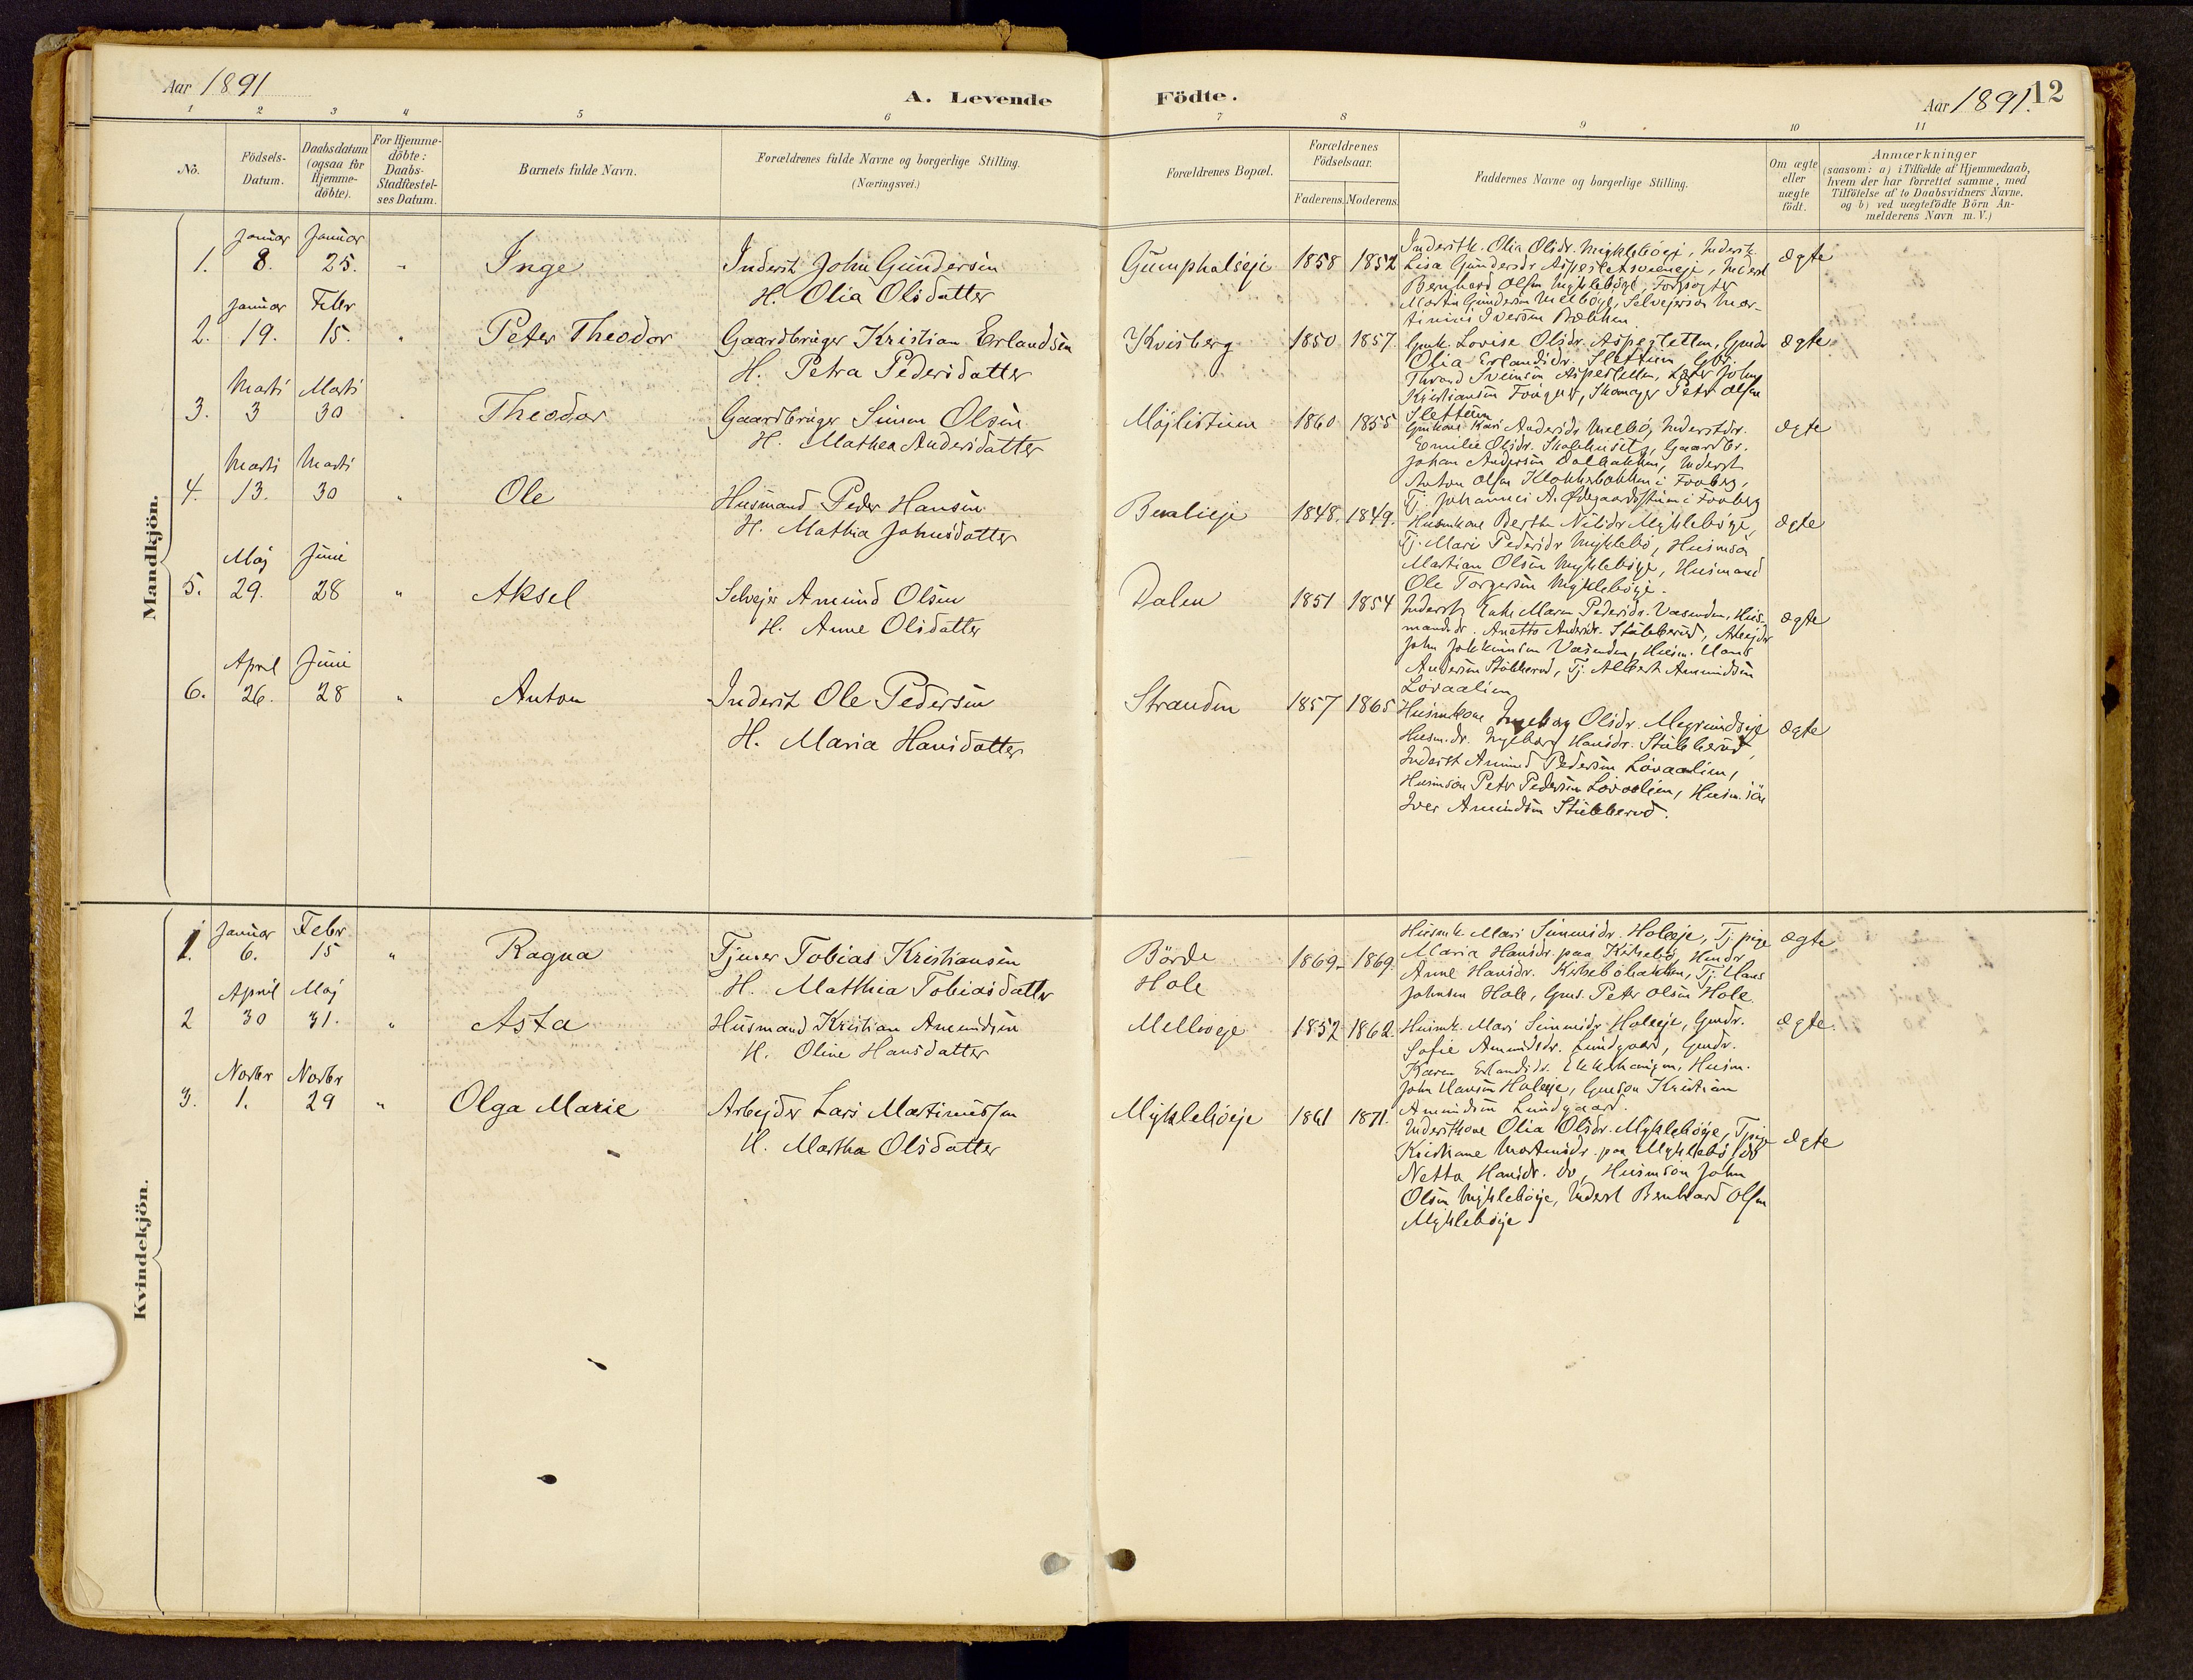 Aar 1891
A. Levende
Födte.
Aar 1891.
12
1 2 3 4 5 6 7 8 9 10 11
No.
Födsels-
Datum.
Daabsdatum
(ogsaa for
Hjemme-
döbte).
For Hjemme-
döbte:
Daabs-
Stadfæstel-
ses Datum.
Barnets fulde Navn.
Forældrenes fulde Navne og borgerlige Stilling.
(Næringsvei.)
Forældrenes Bopæl.
Forældrenes
Födselsaar.
Faderens. Moderens.
Faddernes Navne og borgerlige Stilling.
Om ægte
eller
uægte
födt.
Anmærkninger
(saasom: a) i Tilfælde af Hjemmedaab,
hvem der har forrettet samme, med
Tilföielse af to Daabsvidners Navne.
og b) ved uægtefödte Börn An-
melderens Navn m. V.)
Mandkjön.
Januar Januar
1. 8. 25. " Inge
Inderst John Gundersen
H. Olia Olsdatter
Gumphalseje 1858 1852
Inderstk. Olia Olsdr. Mykleböeje, Inderstk.
Lisa Gundersdr Aspesletsveneje, Inderst
Bernhard Olsen Mykleböeje, Forpagter
Martin Gundersen Melböeje, Selvejersön Mar-
tinius Iversen Bakken
ægte
Januar Febr
2. 19. 15. " Peter Theodor
Gaardbruger Kristian Erlandsen
H. Petra Pedersdatter
Kvisberg 1850 1857.
Gmk. Lovise Olsdr. Aspesletten, Gmdr
Olia Erlandsdr. Slettum, Gbr.
Thrond Svensen Aspesletten, Lærer John
Kristiansen Fougner, Skomager Peter Olsen
Slettum
ægte
Marts Marts
3. 3 30 " Theodor
Gaardbruger Simen Olsen
H. Mathea Andersdatter
Möjlistuen 1860 1855
Gmkone Kari Andersdr Melbö, Inderstdr.
Emilie Olsdr. Skolehuset, Gaardbr.
Johan Andersen Dalbakken, Inderst
Anton Olsen Klokkerbakken i Faaberg,
Tj. Johannes A. Ødegaardsstuen i Faaberg
ægte
Marts Marts
4. 13. 30 " Ole
Husmand Peder Hansen
H. Mathia Johnsdatter
1848. 1849.
Husmkone Berthe Nilsdr Mykleböeje,
Tj. Mari Pedersdr Myklebö, Husmsön
Martian Olsen Mykleböeje, Husmand
Ole Torgersen Mykleböeje.
ægte
Maj Juni
5. 29. 28 " Aksel
Selvejer Amund Olsen
H. Anne Olsdatter
Dalen 1851 1854
Inderst Enke Maren Pedersdr. Vasenden, Hus-
mandsdr. Anette Andersdr. Stubberud, Arbejder
John Jokkumsen Vasenden, Husm. Hans
Andersen Stubberud, Tj. Albert Amundsen
Lövaalien
ægte
April Juni
6. 26. 28 " Anton
Inderst Ole Pedersen
H. Maria Hansdatter
Stranden 1857 1865
Husmkone Ingeborg Olsdr. Megrundseje
Husm.dr. Ingeborg Hansdr. Stubberud,
Inderst Amund Pedersen Lövaalien,
Husmsön Peter Pedersen Lövaalien, Husm.sön
Iver Amundsen Stubberud.
ægte
Kvindekjön.
Januar Febr
1. 6. 15 " Ragna
Tjener Tobias Kristiansen
H. Matthia Tobiasdatter
Börde
Hole
1869. 1869.
Husmk. Mari Simensdr. Holeeje, Tj. pige
Maria Hansdr. paa Kirkebö, Husmdr
Anne Hansdr. Kirkeböbakken, Tj. Hans
Johnsen Hole, Gms. Peter Olsen Hole.
ægte
April Maj
2 30 31. " Asta
Husmand Kristian Amundsen
H. Oline Hansdatter
Melboeje 1852 1862.
Husmk. Mari Simensdr Holeeje, Gmdr.
Sofie Amundsdr. Lundgaard, Gmdr.
Karen Erlandsdr. Ekkerhaugen, Husm.
John Hansen Holeeje, Gmsön Kristian
Amundsen Lundgaard.
ægte.
Novbr Novbr
3. 1. 29 " Olga Marie
Arbejder Lars Martinussen
H. Martha Olsdatter
Mykleböeje 1861 1871.
Inderstkone Olia Olsdr. Mykleböeje, Tpige
Kristiane Martinsdr. paa Myklebö, do
Netta Hansdr. do, Husmsön John
Olsen Mykleböeje, Inderst Bernhard Olsen
Mykleböeje
ægte